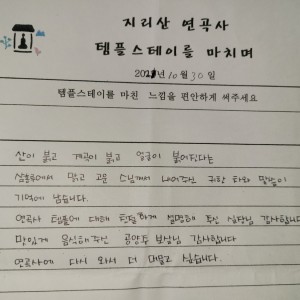 지리산 연곡사
템플스테이를 마치며
2021년 10월 30일
템플스테이를 마친 느낌을 편안하게 써주세요
산이 붉고 계곡이 붉고 얼굴이 붉어진다는
삼홍루에서 맑고 고운 스님께서 내어주신 귀한 차와 말씀이
기억에 남습니다.
연곡사 템플에 대해 친절하게 설명해 주신 실장님 감사합니다
맛있게 음식해주신 공양주 보살님 감사합니다
연곡사에 다시 와서 더 머물고 싶습니다.